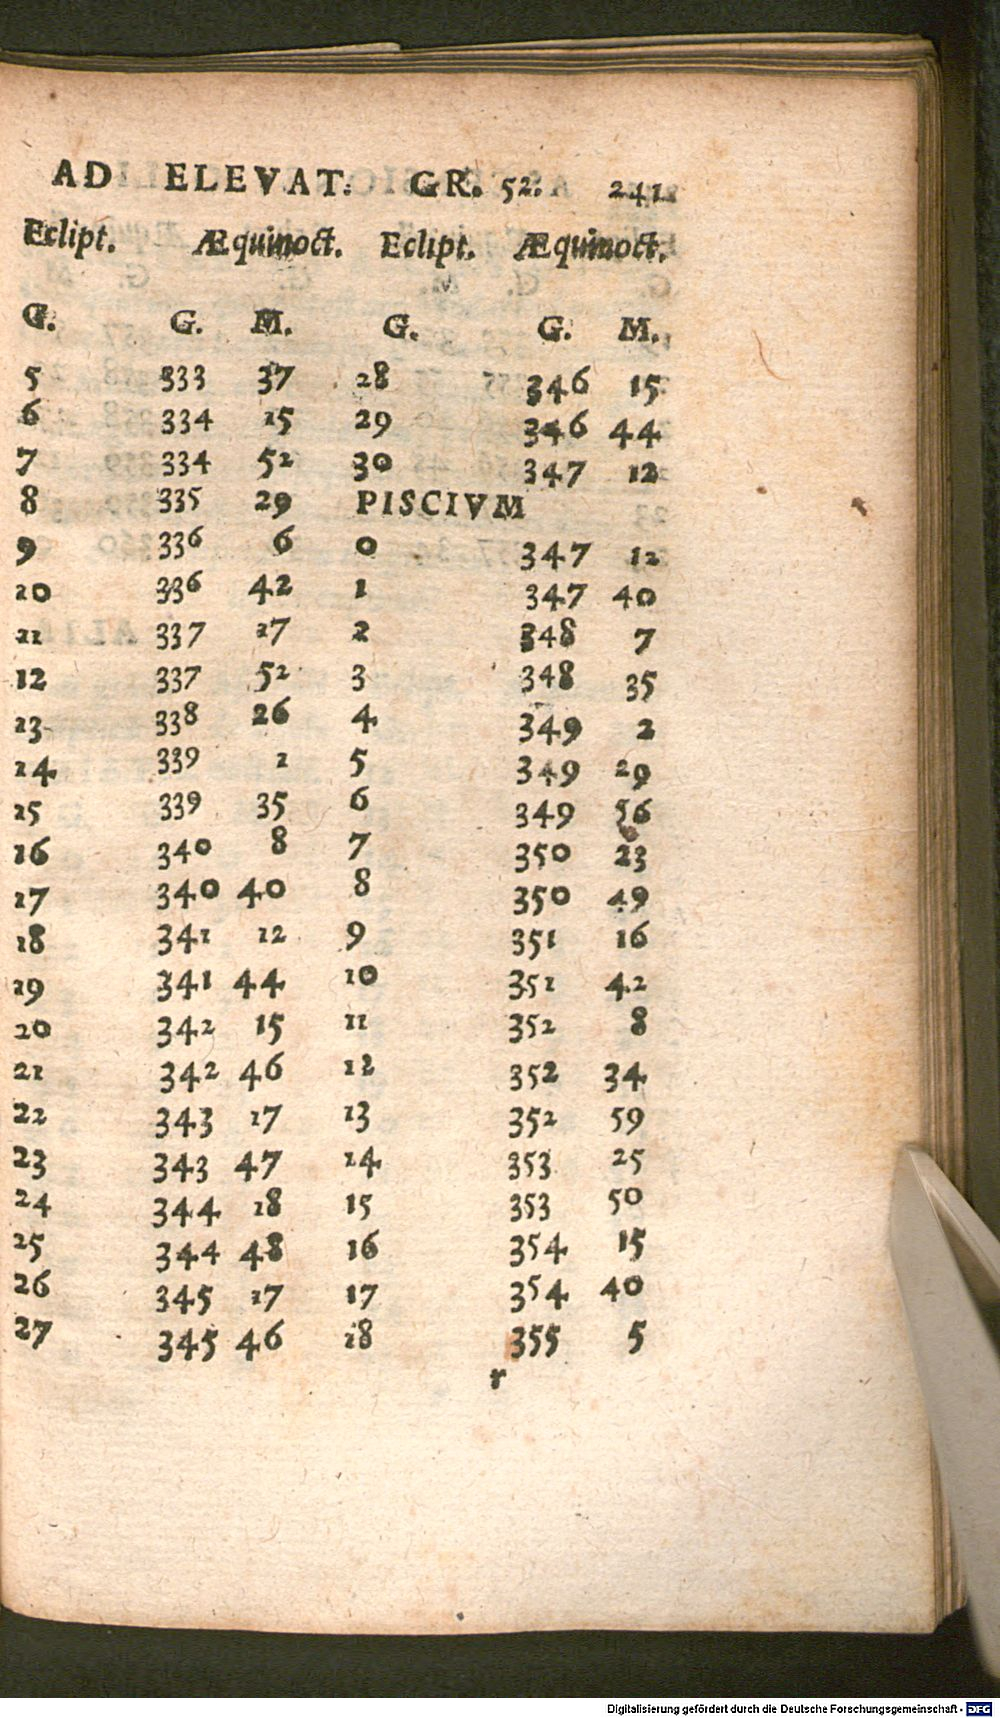 AD ELEVAT. GR. 52. 241
Eclipt. Æquinoct. Eclipt. Æquinoct.
G. G. M. G. G. M.
5 333 37 28 346 15
6 334 15 29 346 44
7 334 52 30 347 12
8 335 29 PISCIVM
9 336 6 0 347 12
10 336 42 1 347 40
11 337 17 2 348 7
12 337 52 3 348 35
13 338 26 4 349 2
14 339 1 5 349 29
15 339 35 6 349 56
16 340 8 7 350 23
17 340 40 8 350 49
18 341 12 9 351 16
19 341 44 10 351 42
20 342 15 11 352 8
21 342 46 12 352 34
22 343 17 13 352 59
23 343 47 14 353 25
24 344 18 15 353 50
25 344 48 16 354 15
26 345 17 17 354 40
27 345 46 18 355 5
r
Digitalisierung gefördert durch die Deutsche Forschungsgemeinschaft - DFG